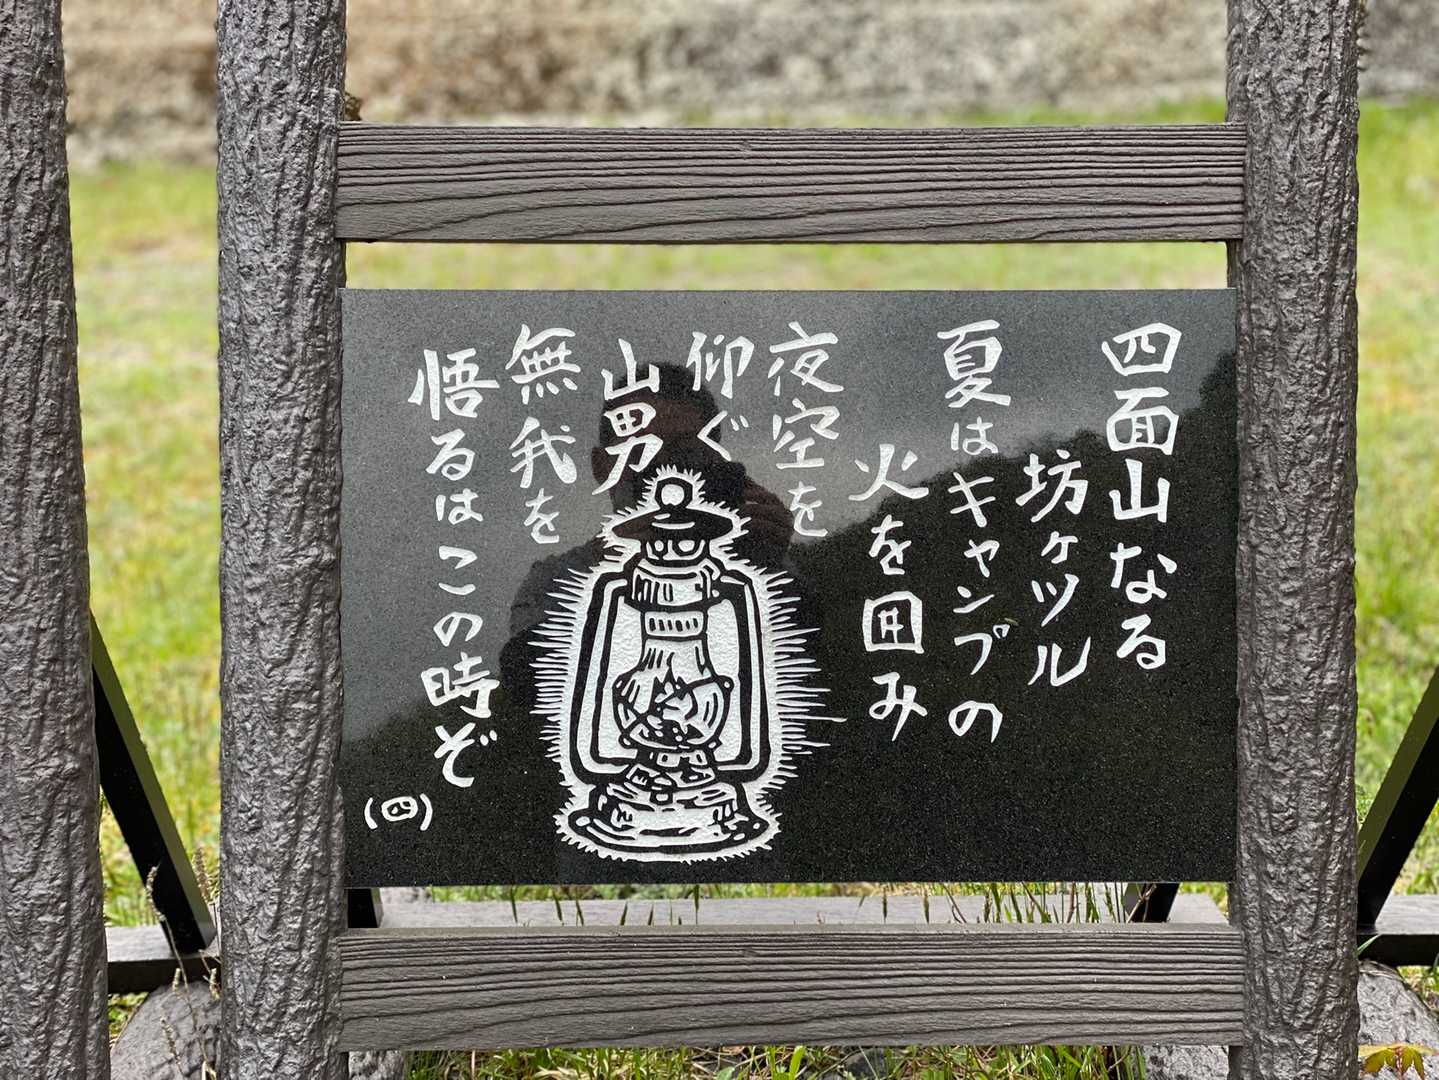 四面山なる
坊ヶツル
夏はキャンプの
火を囲み
夜空を
仰ぐ
山男
無我を
悟るはこの時ぞ
(四)